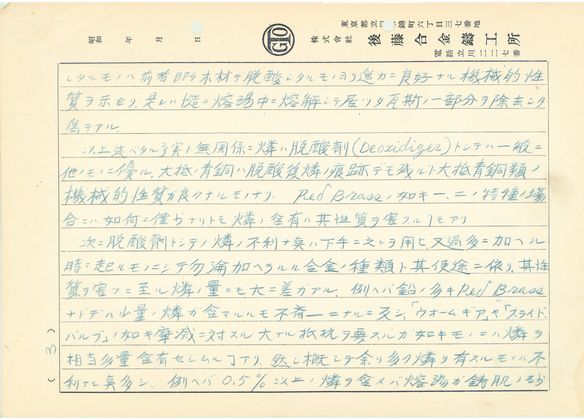 東京都立川市錦町六丁目三七番地
昭和 年 月 日
GTO
株式會社 後藤合金鑄工所
電話立川二二七番
シタルモノハ前者即チ木材デ脱酸シタルモノヨリ遙カニ良好ナル機械的性
質ヲ示セリ、是レハ慥ニ熔湯中ニ熔解シテ居ツタ瓦斯ノ一部分ヲ除去シタ
爲デアル
以上述ベタル事実ト無関係ニ燐ハ脱酸剤(Deoxidizer)トシテハ一般ニ
他ノモノニ優ル、大抵青銅ハ脱酸後燐ノ痕跡デモ残ルト大抵青銅類ノ
機械的性質ガ良クナルモノナリ、 Red Brassノ如キ一、二ノ特種ノ場
合ニハ如何ニ僅少ナリトモ燐ノ含有ハ其性質ヲ害スルヿアリ
次ニ脱酸劑トシテノ燐ノ不利ナ臭ハ下手ニ之レヲ用ヒ、又過多ニ加ヘル
時ニ起ルモノニシテ勿論加ヘラルル合金ノ種類ト其使途ニ依リ、其性
質ヲ害フニ至ル燐ノ量ニモ大ニ差ガアル、例ヘバ鉛ノ多キRed Brass
ナドデハ少量ノ燐ガ含マルルモ不斉一ニナルニ反シ「ウオームギア」ヤ「スライド
バルブ」ノ如キ摩滅ニ対スル大ナル抵抗ヲ要スルガ如キモノニハ燐ヲ
相当多量含有セシムルヿアリ、然シ概シテ余リ多クノ燐ヲ有スルモノハ不
利ナル臭多シ、例ヘバ0.5%以上ノ燐ヲ含メバ熔湯ガ鋳肌ノ砂
(3)